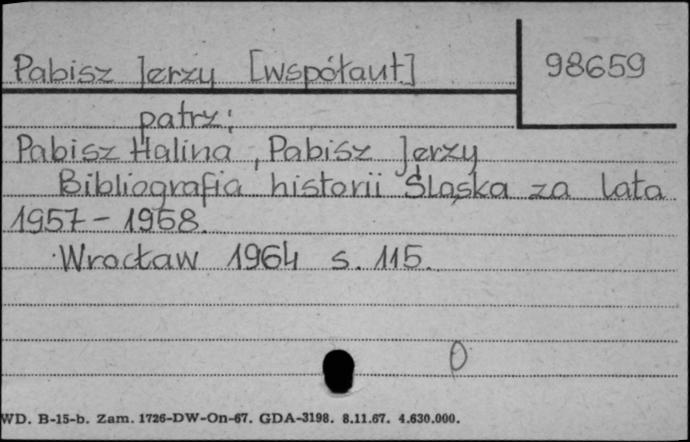 Pabisz Jerzy [współaut] 98659
patrz:
Pabisz Halina, Pabisz Jerzy
Bibliografia historii Śląska za lata
1957-1958.
Wrocław 1964 s. 115.
0
WD. B-15-b. Zam. 1726-DW-On-67. GDA-3198. 8.11.67. 4.630.000.